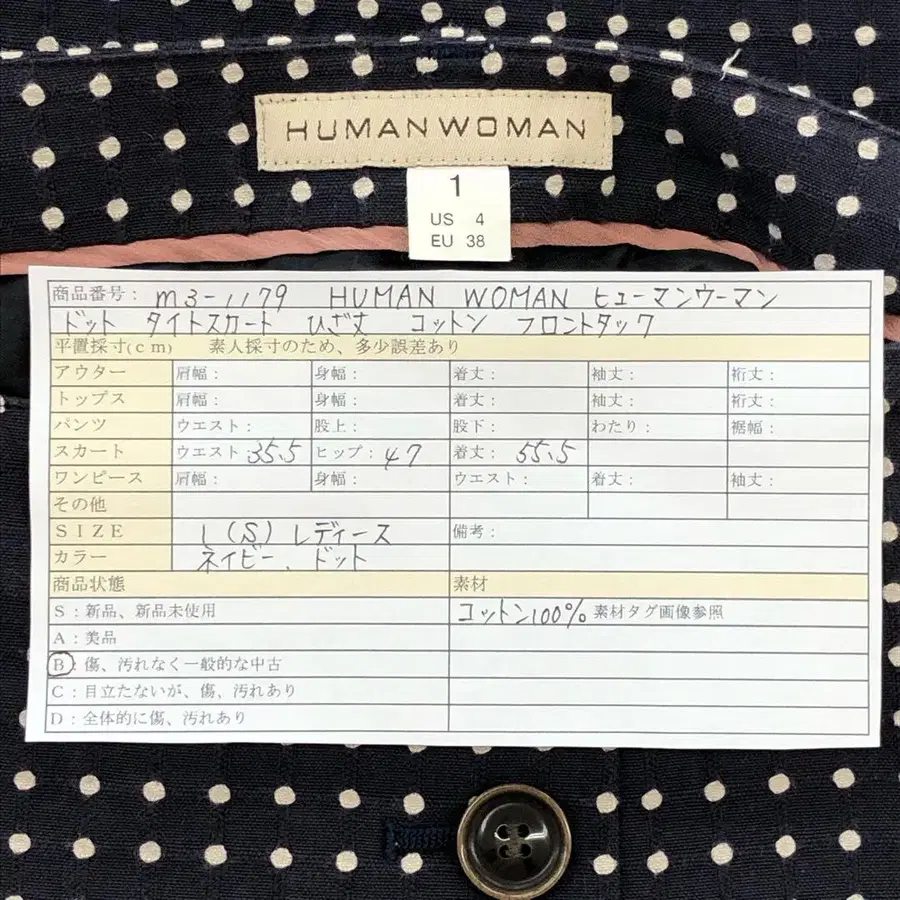 HUMANWOMAN
1
US 4
EU 38
商品番号: m3-1179 HUMAN WOMAN ヒューマンウーマン
ドット タイトスカート ひざ丈 コットン フロントタック
平置採寸(cm) 素人採寸のため、多少誤差あり
アウター 肩幅: 身幅: 着丈: 袖丈: 裄丈:
トップス 肩幅: 身幅: 着丈: 袖丈: 裄丈:
パンツ ウエスト: 股上: 股下: わたり: 裾幅:
スカート ウエスト:35.5 ヒップ:47 着丈:55.5
ワンピース 肩幅: 身幅: ウエスト: 着丈: 袖丈:
その他
SIZE 1(S)レディース 備考:
カラー ネイビー、ドット
商品状態 素材
S:新品、新品未使用 コットン100% 素材タグ画像参照
A:美品
B:傷、汚れなく一般的な中古
C:目立たないが、傷、汚れあり
D:全体的に傷、汚れあり